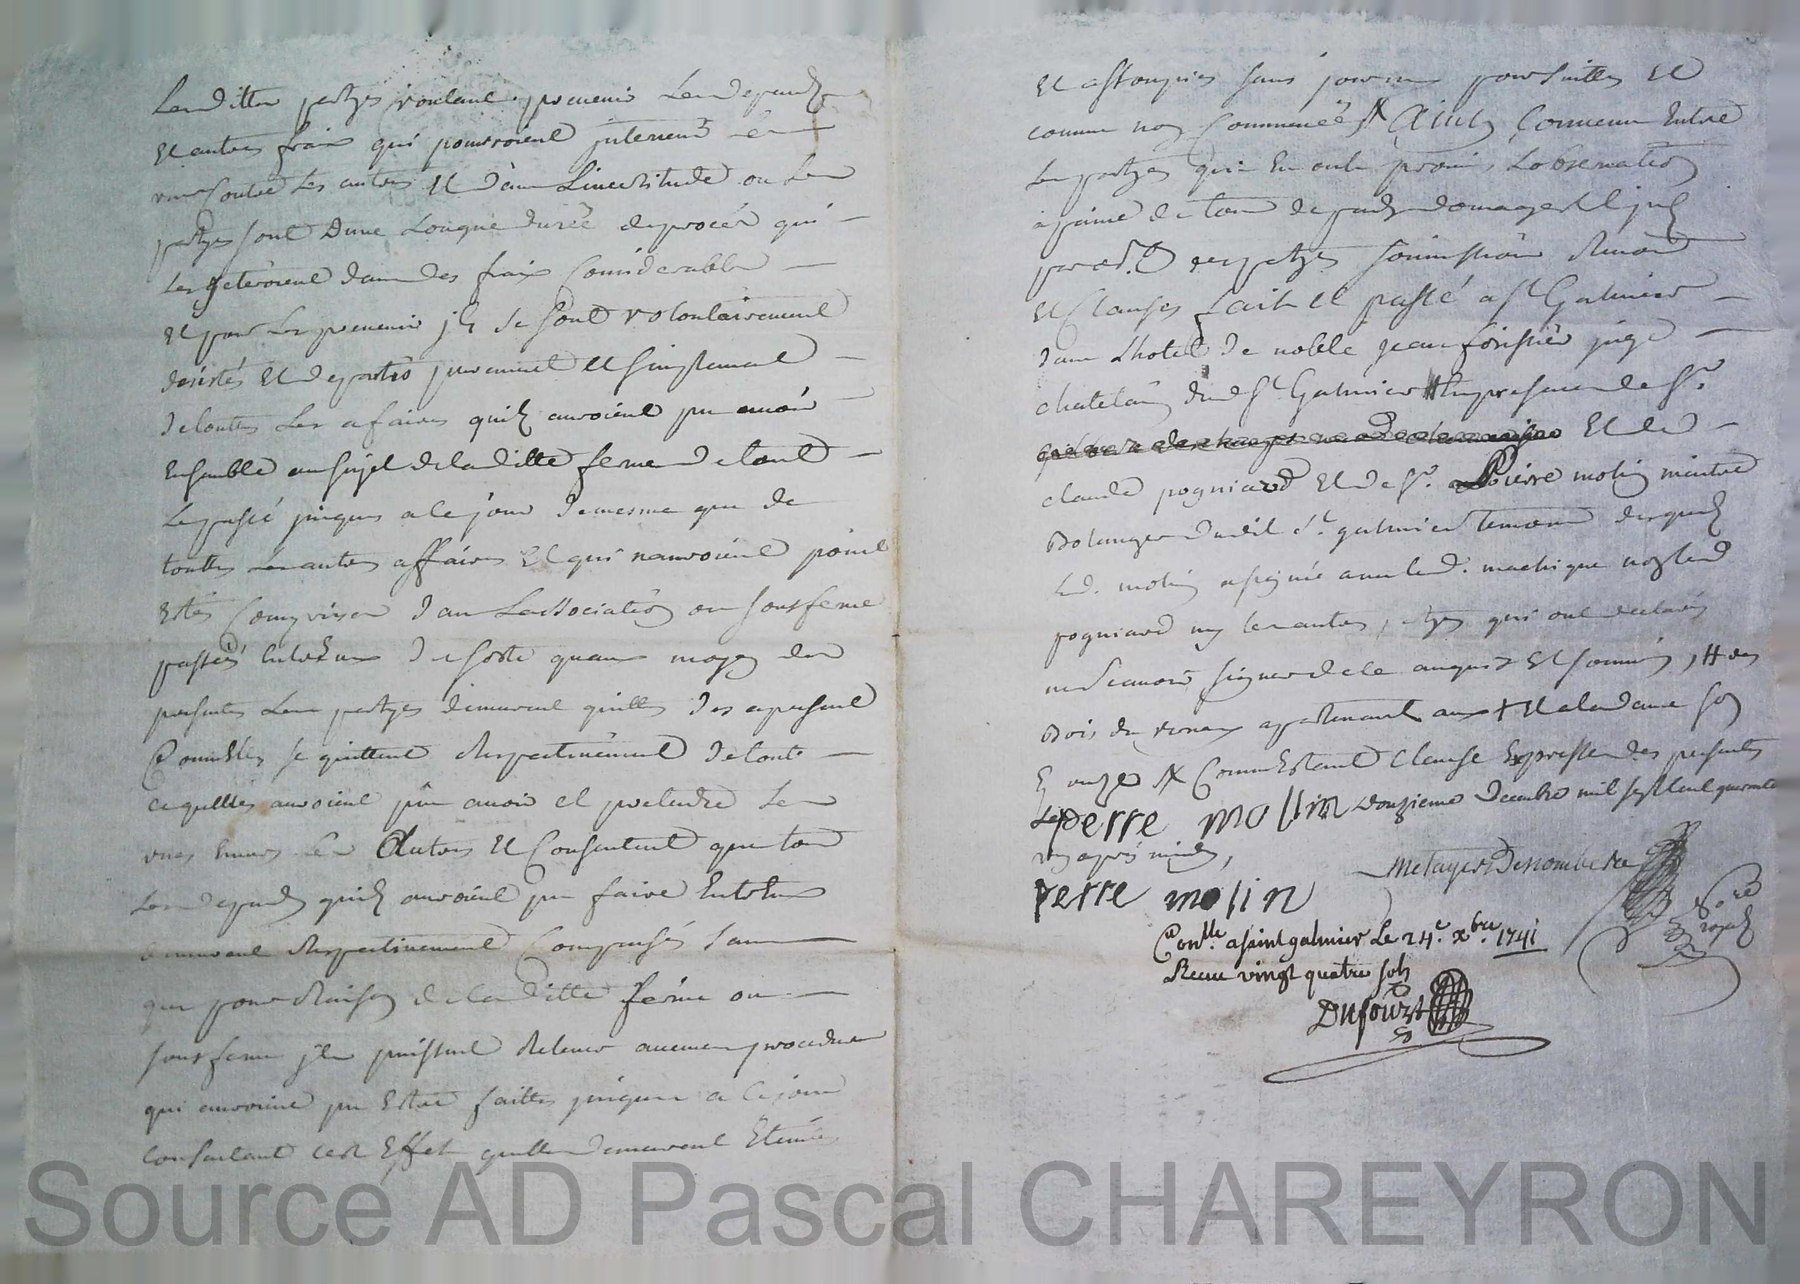 Lesdittes partyes voulant prevenir Les depends
Et autres fraix qui pourroient intervenir Les
uns Contre Les autres Et dans Lincertitude ou Les
partyes sont Dune Longue durée de procés qui
Les jeteroient dans des fraix Considerables
Et pour Les prevenir ils se sont volontairement
desistés Et departis purement et simplement
de touttes Les afaires quils auroient pu avoir
Ensemble au sujet de la ditte ferme de tout
Le passé jusques a ce jour de mesme que de
touttes Les autres affaires Et qui nauroient point
Estés Comprises dans Lassociation ou sousferme
passée Entre Eux de sorte quau moyen des
presentes Les partyes demeurent quittes des a present
Comm'elles se quittent Respectivement de tout
ce quelles auroient pu avoir et pretendre Les
unes Envers Les Autres Et Consentent que tous
Les depends quils auroient pu faire Entre Eux
demeurent Respectivement Compensés sans
que pour Raison de la ditte ferme ou
sousferme ils puissent Relever aucunes procedures
qui auroient pu Estre faittes jusques a ce jour
Consentant a cet Effet quelles demeurent Eteintes
Et assoupies sans pouvoir poursuittes Et
comme non Commencées Ainsy Convenu Entre
Les partyes qui En ont promis Lobservation
a peine de tous depends domages
par des partyes soumissions Renon
Et Clauses fait et passé a St Galmier
dans Lhotel de noble jean forissier juge
chatelain dud St Galmier En presence de Sr
Et de
claude pogniard Et de Sr Pierre molin maitre
Bolanger dudit St galmier temoins desquels
Led. molin a signé avec led.
pogniard ny les autres partyes qui ont declarés
ne Scavoir signer de ce enquis Et sommés, des
Bois de apartenant aux Et a la dame son
Epouze Comm Estant Clause Expresse des presentes
Le douzieme decembre mil sept Cent quarante
un apres midy,
perre molin
perre molin
Metayer Desombe
Nore
royal
Conlle a saint galmier Le 24e xbre 1741
Receu vingt quatre sols
Dufour
Source AD Pascal CHAREYRON